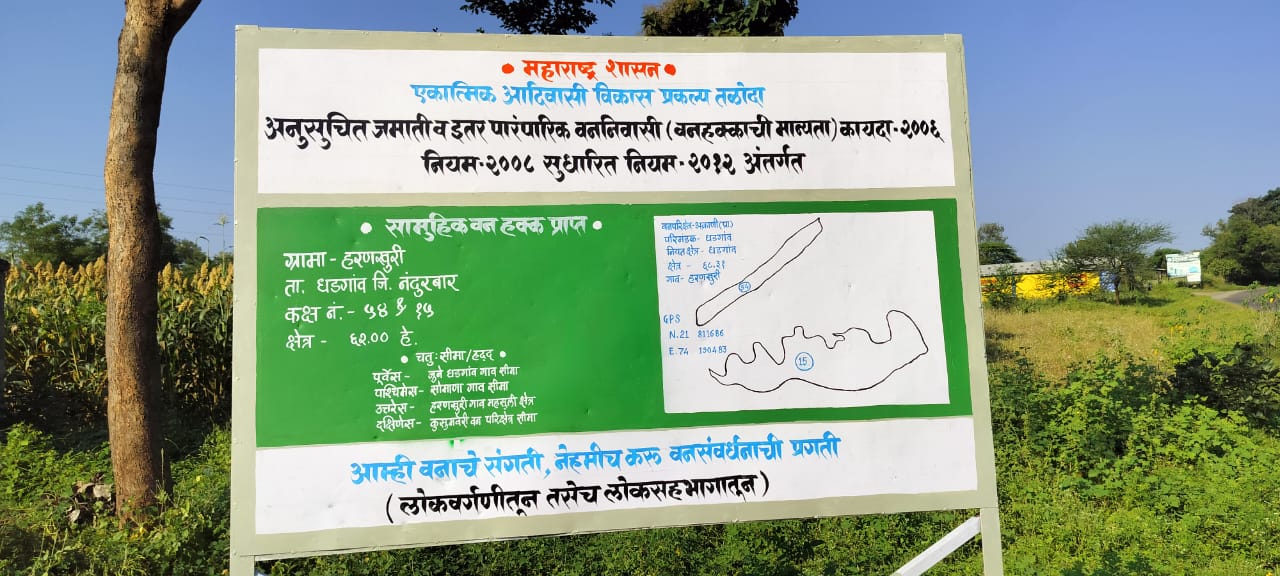 • महाराष्ट्र शासन •
एकात्मिक आदिवासी विकास प्रकल्प तळोदा
अनुसुचित जमाती व इतर पारंपारिक वननिवासी (वनहक्काची मान्यता) कायदा-२००६
नियम-२००८ सुधारित नियम-२०१२ अंतर्गत
• सामुहिक वन हक्क प्राप्त •
ग्रामा - हरणखुरी
ता. धडगांव जि. नंदुरबार
कक्ष नं. - ५४ & १५
क्षेत्र - ६२.०० हे.
• चतु:सीमा/हद्द •
पूर्वेस - जुने धडगांव गाव सीमा
पश्चिमेस - सोमाणा गाव सीमा
उत्तरेस - हरणखुरी गाव महसुली क्षेत्र
दक्षिणेस - कुसुमवेरी वन परिक्षेत्र सीमा
वनपरिक्षेत्र-अक्राणी (प्रा)
परिमंडळ - धडगांव
नियतक्षेत्र - धडगांव
क्षेत्र - ६८.३१
गाव - हरणखुरी
54
GPS
N.21 811686
E.74 190483
15
आम्ही वनाचे संगती, नेहमीच करू वनसंवर्धनाची प्रगती
(लोकवर्गणीतून तसेच लोकसहभागातून)